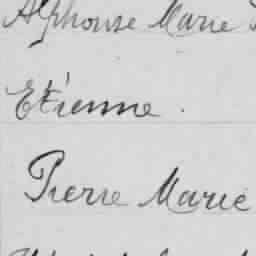 Alphonse Marie
Etienne.
Pierre Marie